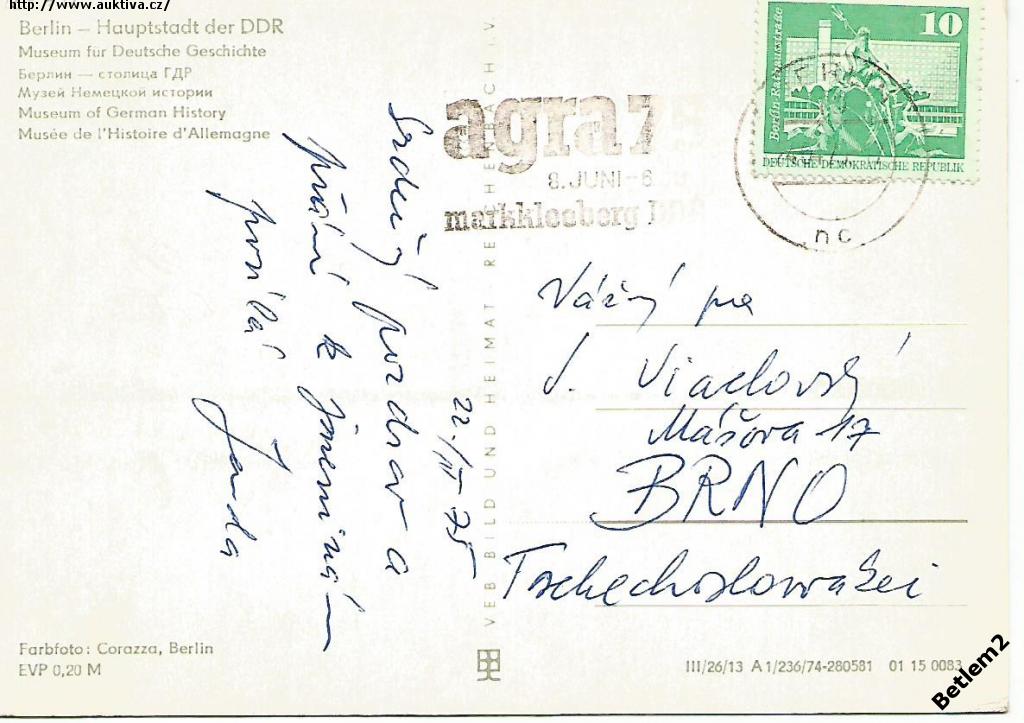 http://www.auktiva.cz/
Berlin – Hauptstadt der DDR
Museum für Deutsche Geschichte
Берлин — столица ГДР
Музей Немецкой истории
Museum of German History
Musée de l'Histoire d'Allemagne
agra 7
8. JUNI – 6
markkleeberg DDR
10
Berlin-Rathausstraße
DEUTSCHE DEMOKRATISCHE REPUBLIK
nc
Srdečný pozdrav a
přání k jmeninám
posílá
Jarda
22./IV 75
VEB BILD UND HEIMAT · REICHENBACH i.V.
Vážný pan
J.
Mášova 17
BRNO
Tschechoslowakei
Farbfoto: Corazza, Berlin
EVP 0,20 M
III/26/13 A 1/236/74-280581 01 15 0083
Betlem2